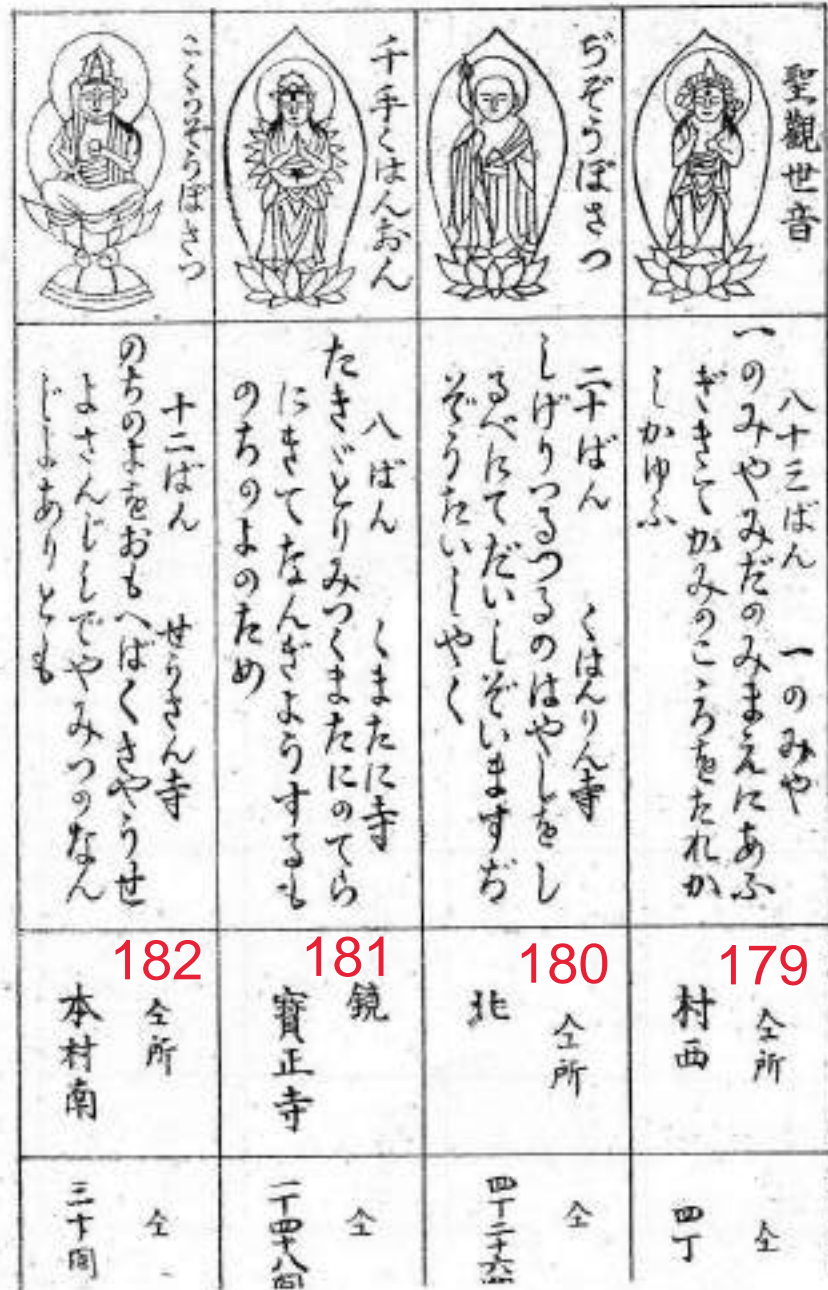 聖觀世音
八十三ばん 一のみや
一のみやみだのみまえにあふ
ぎきてかみのこゝろをたれか
しかゆふ
179
仝所
村西
仝
四丁
ぢぞうぼさつ
二十ばん くはんりん寺
しげりつるつるのはやしをし
るべにてだいしぞいますぢ
ぞうたいしやく
180
仝所
北
仝
四丁二十六
千手くはんおん
八ばん くまたに寺
たきゞとりみづくまたにのてら
にきてなんぎようするも
のちのよのため
181
鏡
寳正寺
仝
一丁四十八間
こくうぞうぼさつ
十二ばん せうさん寺
のちのよをおもへばくぎやうせ
よさんじしでやみつのなん
じよありとも
182
仝所
本村南
仝
三十間